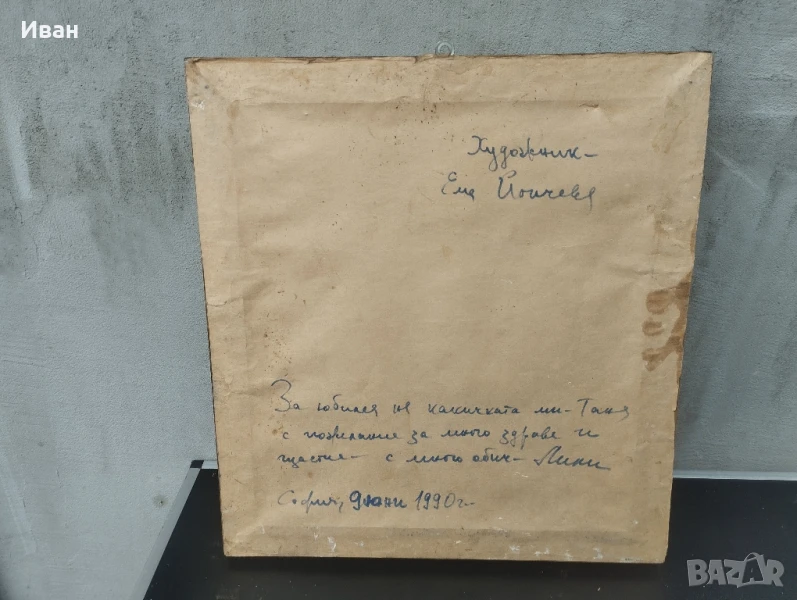 Иван
Художник –
Ема Йончева
За юбилея на какичката ми – Таня
с пожелание за много здраве и
щастие – с много обич – Лили
София, 9 юни 1990 г.
BAZAR